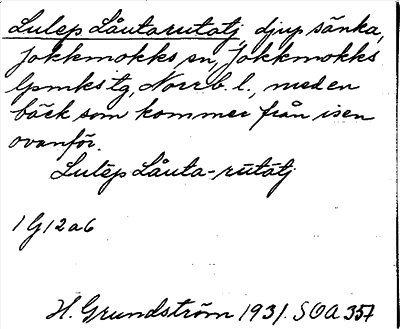 Lulep Låutarutatj, djup sänka,
Jokkmokks sn, Jokkmokks
lpmkstg, Norrb. l., med en
bäck som kommer från isen
ovanför.
Lulēp Låuta-rūtātj
1 G 12 a 6
H. Grundström 1931. SOA 357